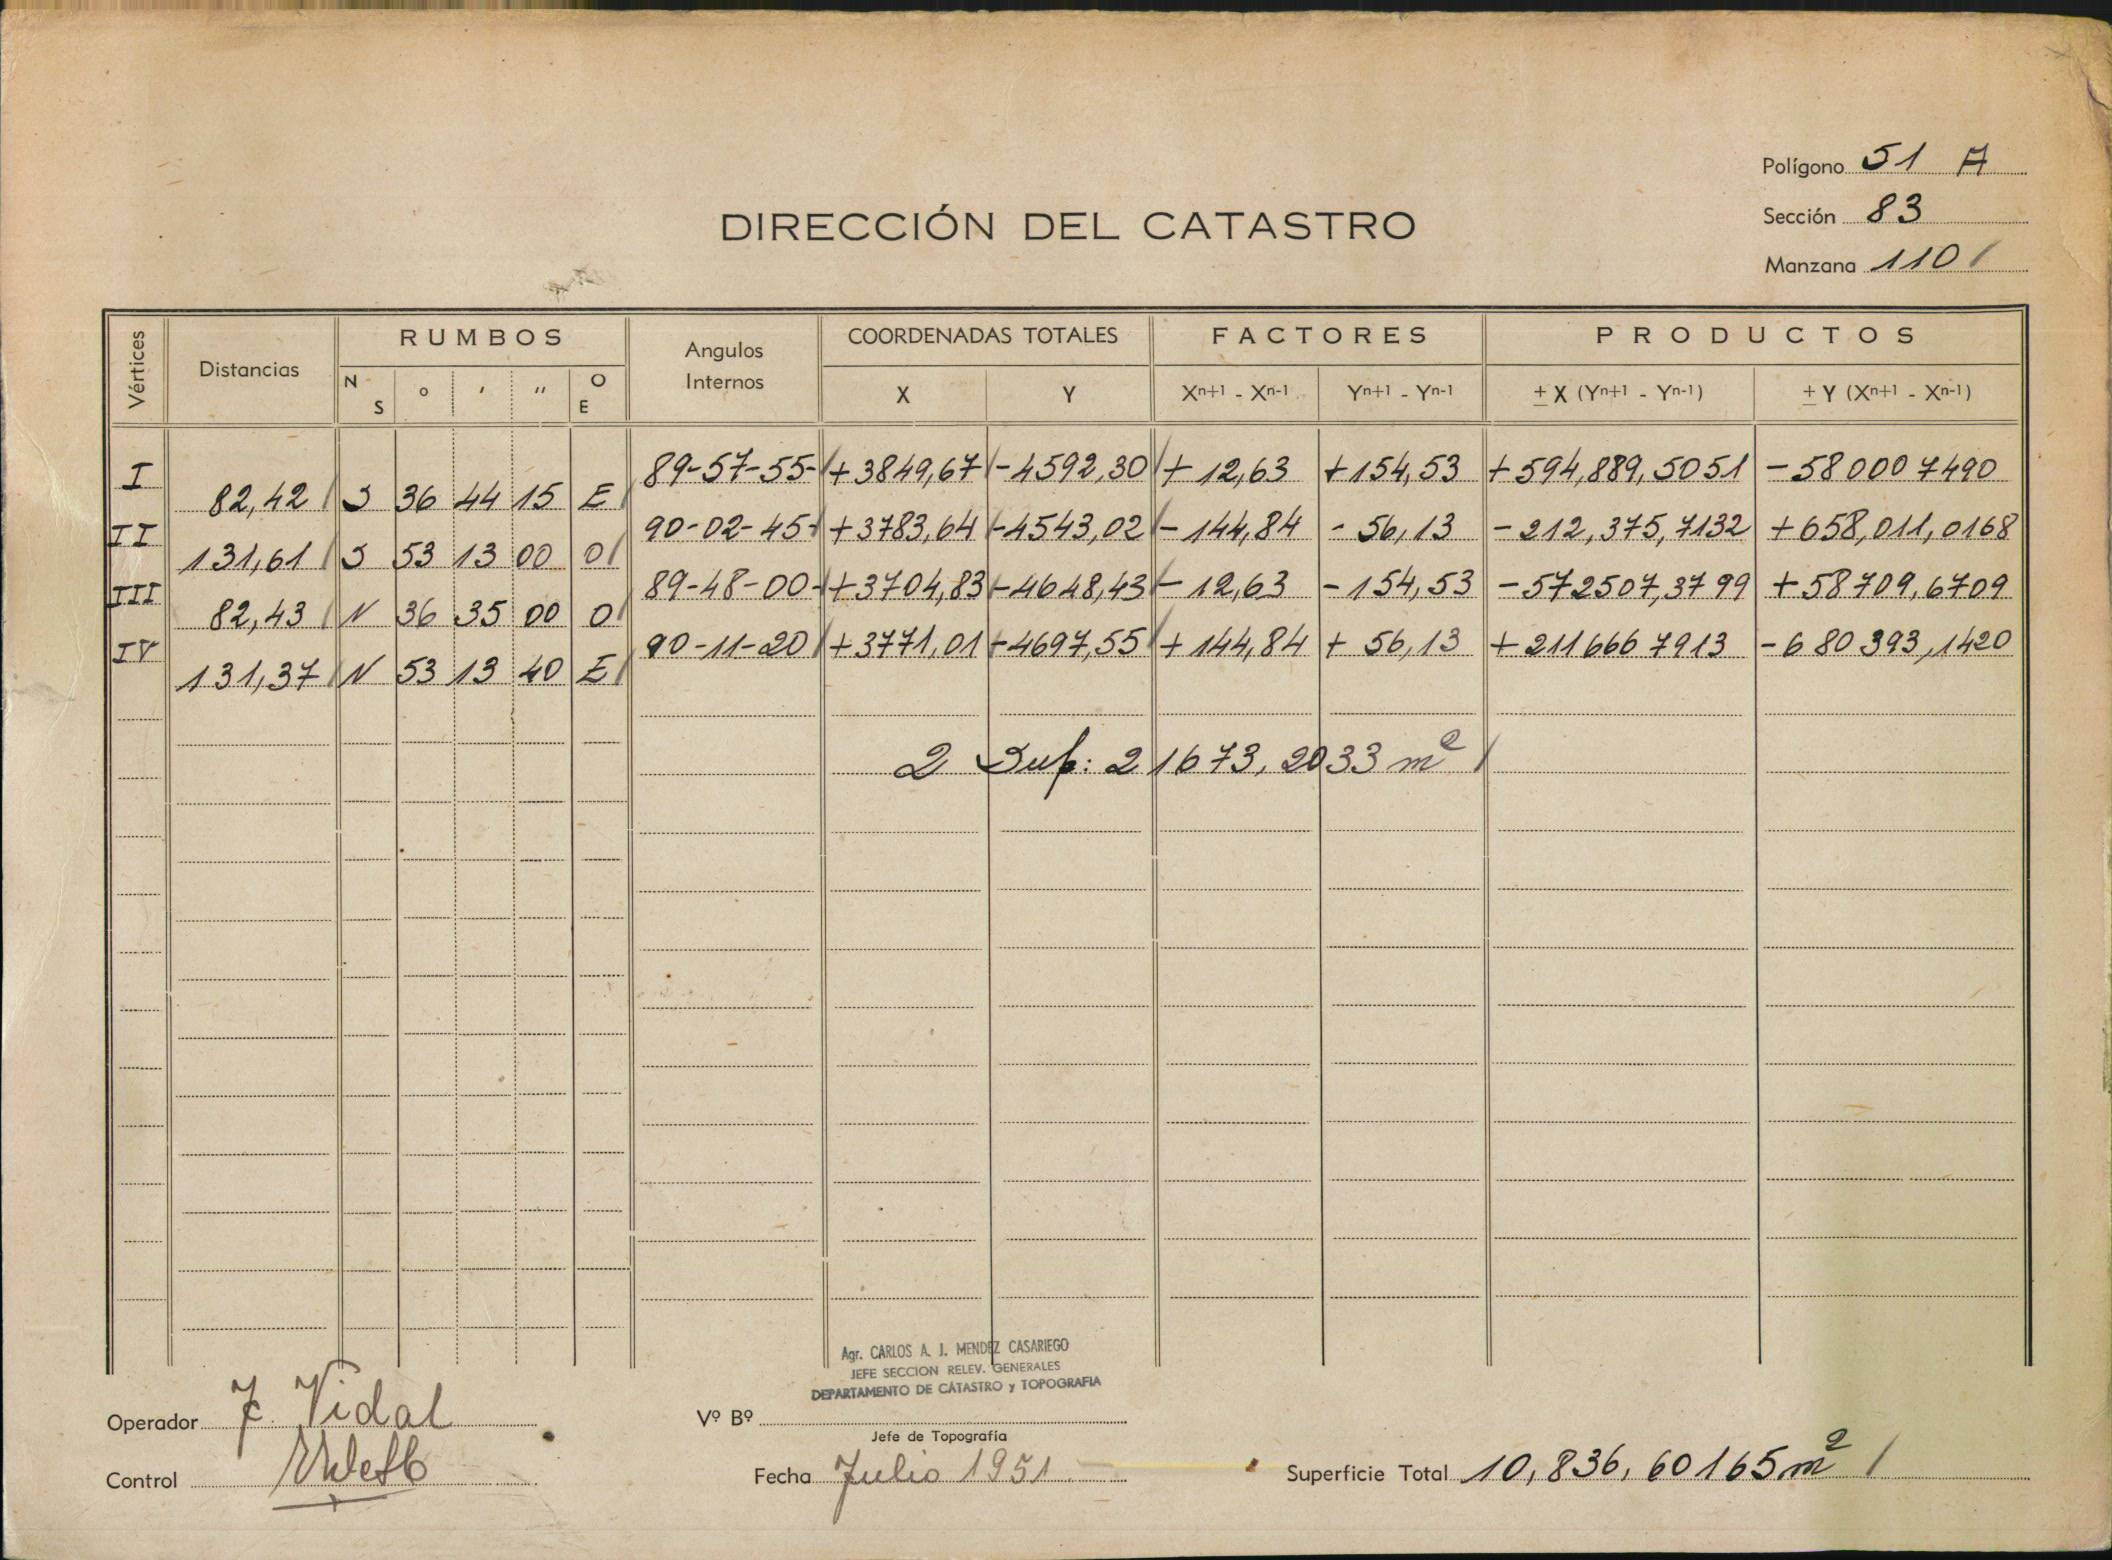 Polígono 51 A
Sección 83
Manzana 110
DIRECCIÓN DEL CATASTRO
Vértices Distancias RUMBOS Angulos Internos COORDENADAS TOTALES FACTORES PRODUCTOS
N S ° ' " O E X Y Xn+1 - Xn-1 Yn+1 - Yn-1 ± X (Yn+1 - Yn-1) ± Y (Xn+1 - Xn-1)
I 89-57-55 +3849,67 -4592,30 + 12,63 +154,53 +594,889,5051 -58000 7490
82,42 S 36 44 15 E
II 90-02-45 +3783,64 -4543,02 - 144,84 - 56,13 -212,375,7132 +658,011,0168
131,61 S 53 13 00 O
III 89-48-00 +3704,83 -4648,43 - 12,63 -154,53 -572507,3799 +58709,6709
82,43 N 36 35 00 O
IV 90-11-20 +3771,01 -4697,55 +144,84 + 56,13 +211666 7913 -680393,1420
131,37 N 53 13 40 E
2 Sup: 21673,2033 m²
Agr. CARLOS A. J. MENDEZ CASARIEGO
JEFE SECCION RELEV. GENERALES
DEPARTAMENTO DE CATASTRO y TOPOGRAFIA
Operador Vidal
Vº Bº
Jefe de Topografía
Control
Fecha Julio 1951
Superficie Total 10,836,60165 m²